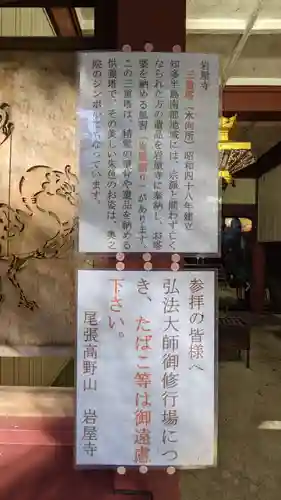 岩屋寺
三重塔【水向所】昭和四十八年建立
知多半島南部地域には、宗派に問わず亡く
なられた方の遺品を岩屋寺に奉納し、お塔
婆を納める風習
があります。
この三重塔は、精霊の骨や遺品を納める
供養塔で、その美しい朱色のお姿は、奥之
院のシンボルになっています。
参拝の皆様へ
弘法大師御修行場につ
き、たばこ等は御遠慮
下さい。
尾張高野山 岩屋寺